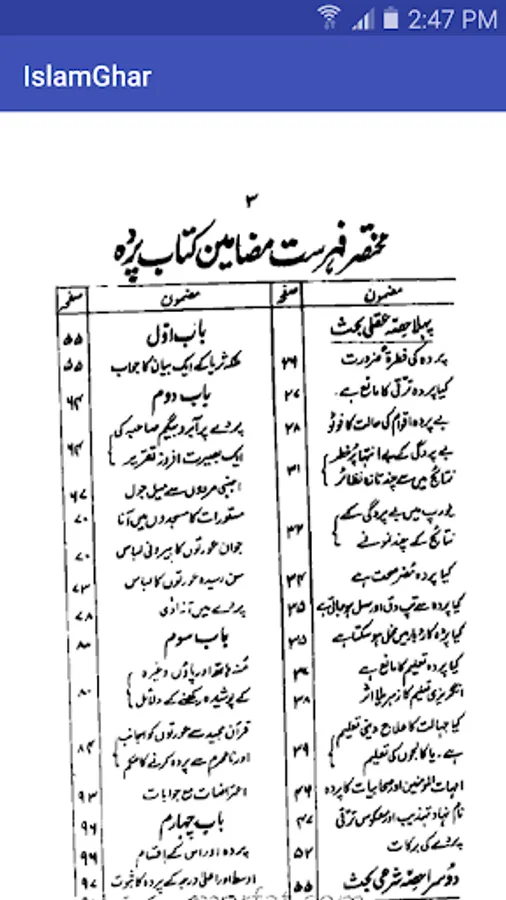 2:47 PM
IslamGhar
۳
مختصر فہرست مضامین کتاب پردہ
مضمون
صفحہ
پہلا حصہ عقلی بحث
پردہ کی فطرۃً ضرورت
۲۶
کیا پردہ ترقی کا مانع ہے۔
۲۷
بے پردہ اقوام کی حالت کا فوٹو
۲۸
بے پردگی کے بے انتہا پُر خطر
نتائج میں سے چند تازہ نظائر
۳۱
یورپ میں بے پردگی کے
نتائج کے چند نمونے
۳۲
کیا پردہ مُضر صحت ہے
۳۴
کیا پردہ سے تپ دق اور سل ہو جاتی ہے
۳۵
کیا پردہ کاروبار میں مخل ہو سکتا ہے
۳۵
کیا پردہ تعلیم کا مانع ہے
۳۶
انگریزی تعلیم کا زہریلا اثر
۳۸
کیا جہالت کا علاج دینی تعلیم
ہے۔ یا کالجوں کی تعلیم
۳۹
امہات المومنین اور صحابیات کا پردہ
۴۶
نام نہاد تہذیب اور معکوس ترقی
۴۷
پردے کی برکات
۵۲
دوسرا حصہ شرعی بحث
۵۵
مضمون
صفحہ
باب اوّل
۵۵
ملکہ ثریا کے ایک بیان کا جواب
۵۵
باب دوم
۶۴
پردے پر آبرو بیگم صاحبہ کی
ایک بصیرت افروز تقریر
۶۴
اجنبی مردوں سے میل جول
۶۷
مستورات کا مسجدوں میں آنا
۷۰
جوان عورتوں کا بیرونی لباس
۷۰
سن رسیدہ عورتوں کا لباس
۷۳
پردے میں آزادی
۷۸
باب سوم
۸۰
مُنہ ہاتھ اور پاؤں وغیرہ
کے پوشیدہ رکھنے کے دلائل
۸۰
قرآن مجید سے عورتوں کو اجانب
اور نامحرم سے پردہ کرنے کا حکم
۸۴
اعتراضات مع جوابات
۹۳
باب چہارم
۹۶
پردہ اور اس کے اقسام
۹۶
اوسط اور اعلیٰ درجہ کے پردہ کا ثبوت
۹۷